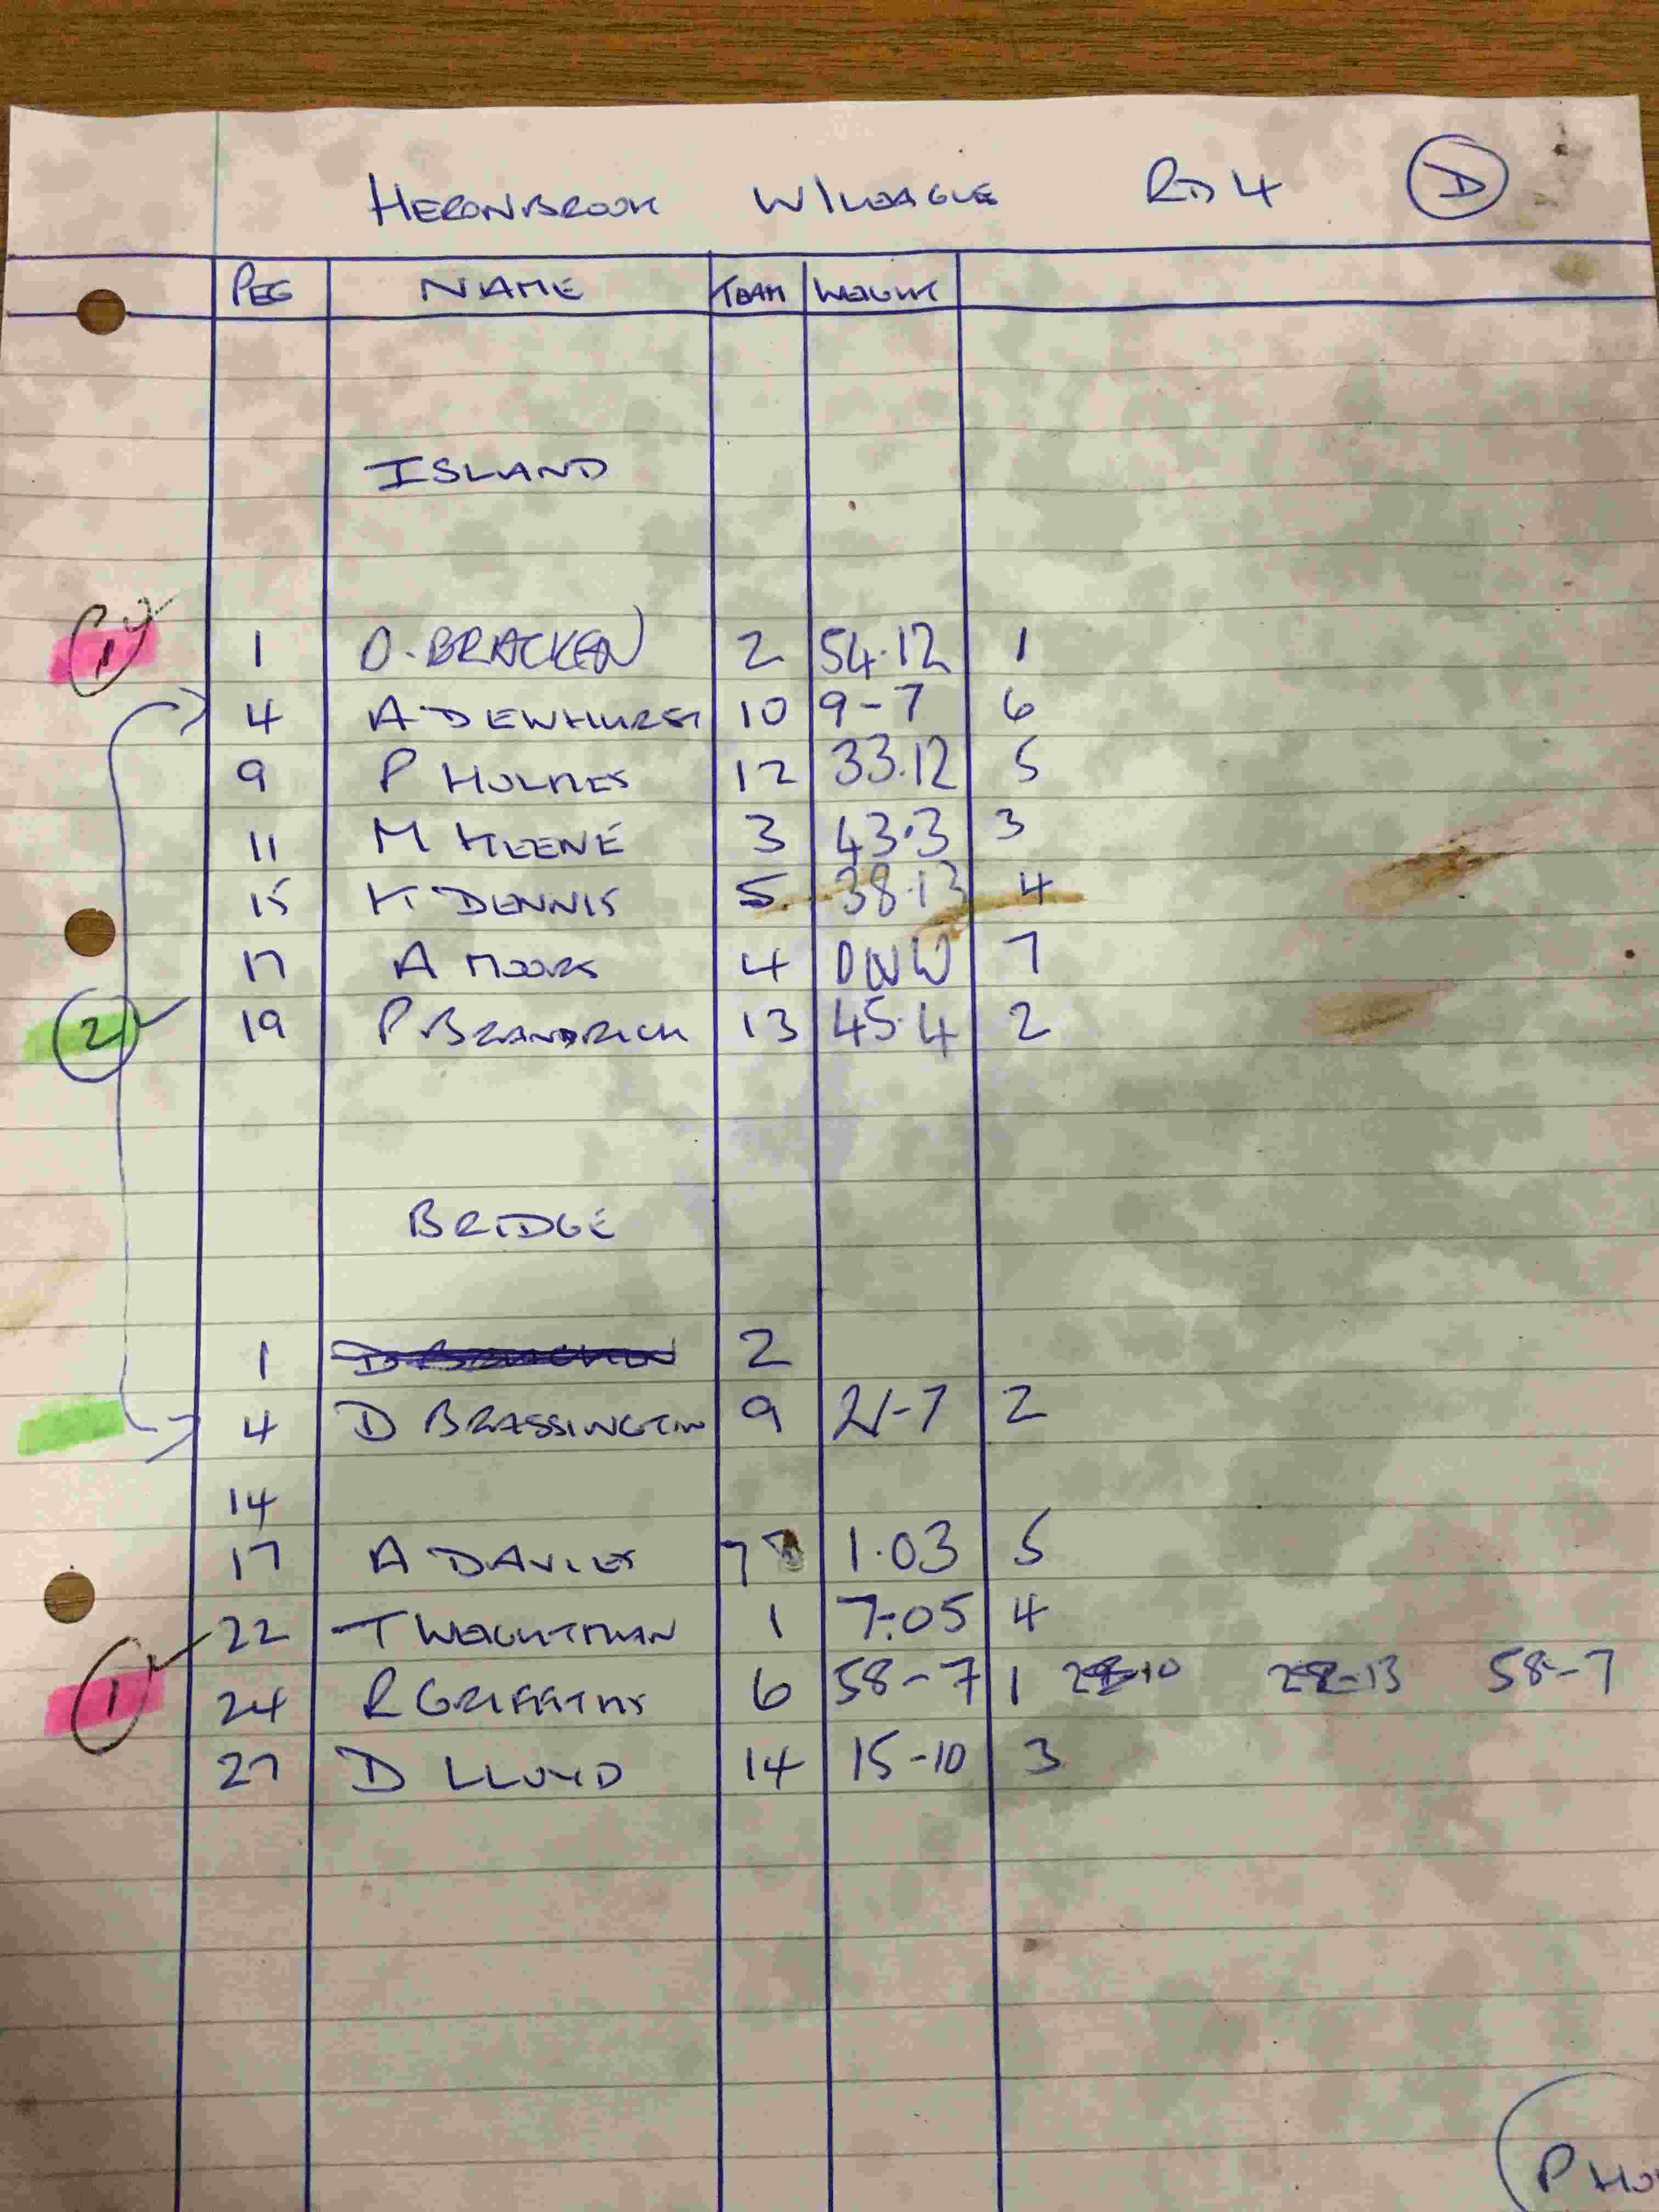 HERONBROOK W/LEAGUE RD 4 D
PEG NAME TEAM WEIGHT
ISLAND
1 1 D. BRACKEN 2 54.12 1
4 A DEWHURST 10 9-7 6
9 P HOLMES 12 33.12 5
11 M KEENE 3 43.3 3
15 K DENNIS 5 38.13 4
17 A MOORS 4 DNW 7
2 19 P BRANDRICK 13 45.4 2
BRIDGE
1 D BRACKEN 2
4 D BRASSINGTON 9 21-7 2
14
17 A DAVIES 7 1.03 5
22 T WEIGHTMAN 1 7-05 4
1 24 R GRIFFITHS 6 58-7 1 58-7
27 D LLOYD 14 15-10 3